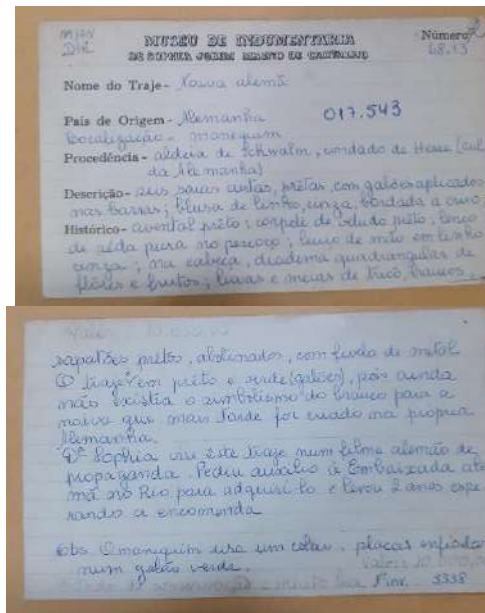 MHN
MUSEU DE INDUMENTÁRIA
DE SOPHIA JOBIM MAGNO DE CARVALHO
Número
68.13
Nome do Traje - Noiva alemã
País de Origem - Alemanha
017.543
Localização - manequim
Procedência - aldeia de Schwalm, condado de Hesse (sul
da Alemanha)
Descrição - seis saias curtas, prêtas, com galões aplicados
nas barras; blusa de linho, cinza, bordada a ouro;
Histórico - avental prêto; corpete de veludo prêto; lenço
de sêda pura no pescoço; lenço de mão em linho
cinza; na cabeça, diadema quadrangular de
flôres e frutos; luvas e meias de tricô, brancos,
sapatões prêtos, abotinados, com fivela de metal
O traje é em prêto e verde (galões), pois ainda
não existia o simbolismo do branco para a
noiva que mais tarde foi criado na própria
Alemanha.
Dª Sophia viu êste traje num filme alemão de
propaganda. Pediu auxílio à Embaixada ale
mã no Rio para adquiri-lo e levou 2 anos espe
rando a encomenda
Obs. O manequim usa um colar, placas enfiadas
num galão verde.
Valor: 10.000,00
Finv. 3338